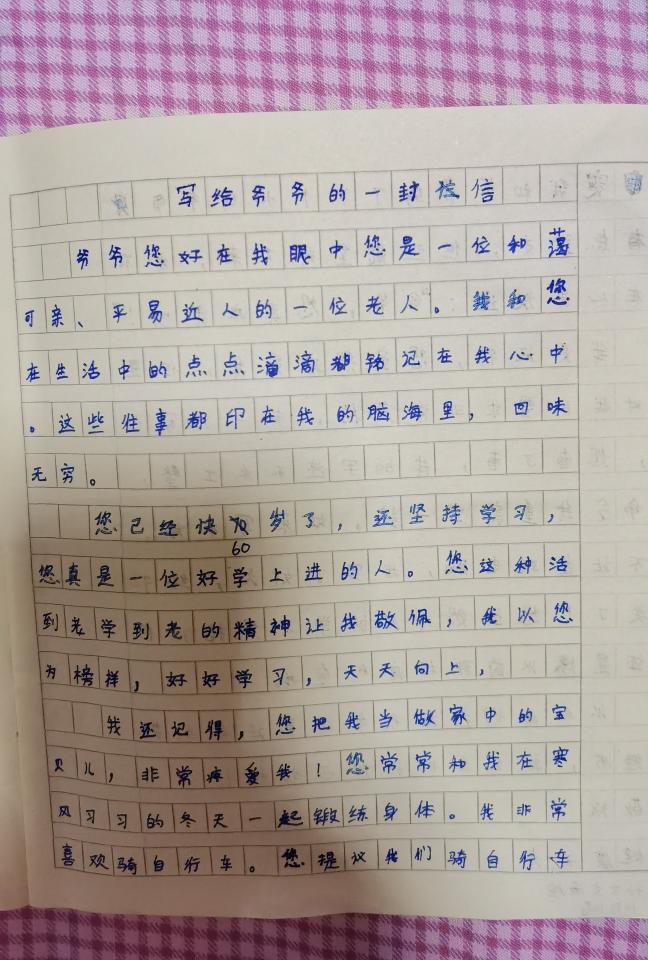 写给爷爷的一封信
爷爷您好在我眼中您是一位和蔼
可亲、平易近人的一位老人。我和您
在生活中的点点滴滴都铭记在我心中
。这些往事都印在我的脑海里，回味
无穷。
您已经快岁了，还坚持学习，
60
您真是一位好学上进的人。您这种活
到老学到老的精神让我敬佩，我以您
为榜样，好好学习，天天向上，
我还记得，您把我当做家中的宝
贝儿，非常疼爱我！您常常和我在寒
风习习的冬天一起锻练身体。我非常
喜欢骑自行车。您提议我们骑自行车